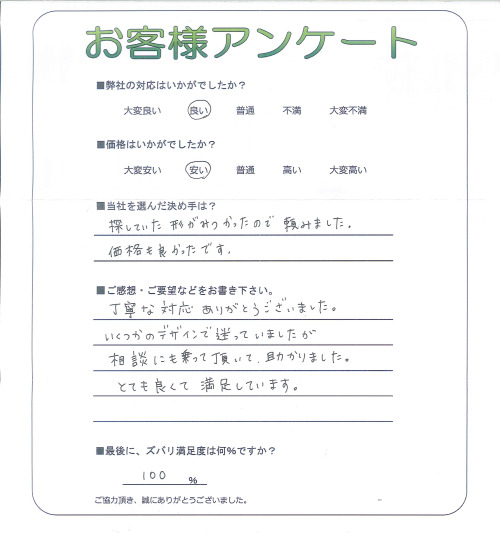 お客様アンケート
■弊社の対応はいかがでしたか？
大変良い 良い 普通 不満 大変不満
■価格はいかがでしたか？
大変安い 安い 普通 高い 大変高い
■当社を選んだ決め手は？
探していた形がみつかったので頼みました。
価格も良かったです.
■ご感想・ご要望などをお書き下さい。
丁寧な対応ありがとうございました。
いくつかのデザインで迷っていましたが
相談にも乗って頂いて、助かりました。
とても良くて満足しています。
■最後に、ズバリ満足度は何%ですか？
100 %
ご協力頂き、誠にありがとうございました。